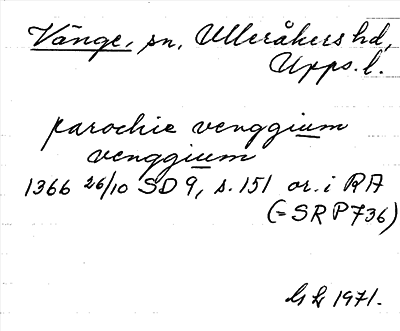 Vänge, sn, Ulleråkers hd,
Upps. l.
parochie venggium
venggium
1366 26/10 SD 9, s. 151 or. i RA
(= SRP 736)
1971.